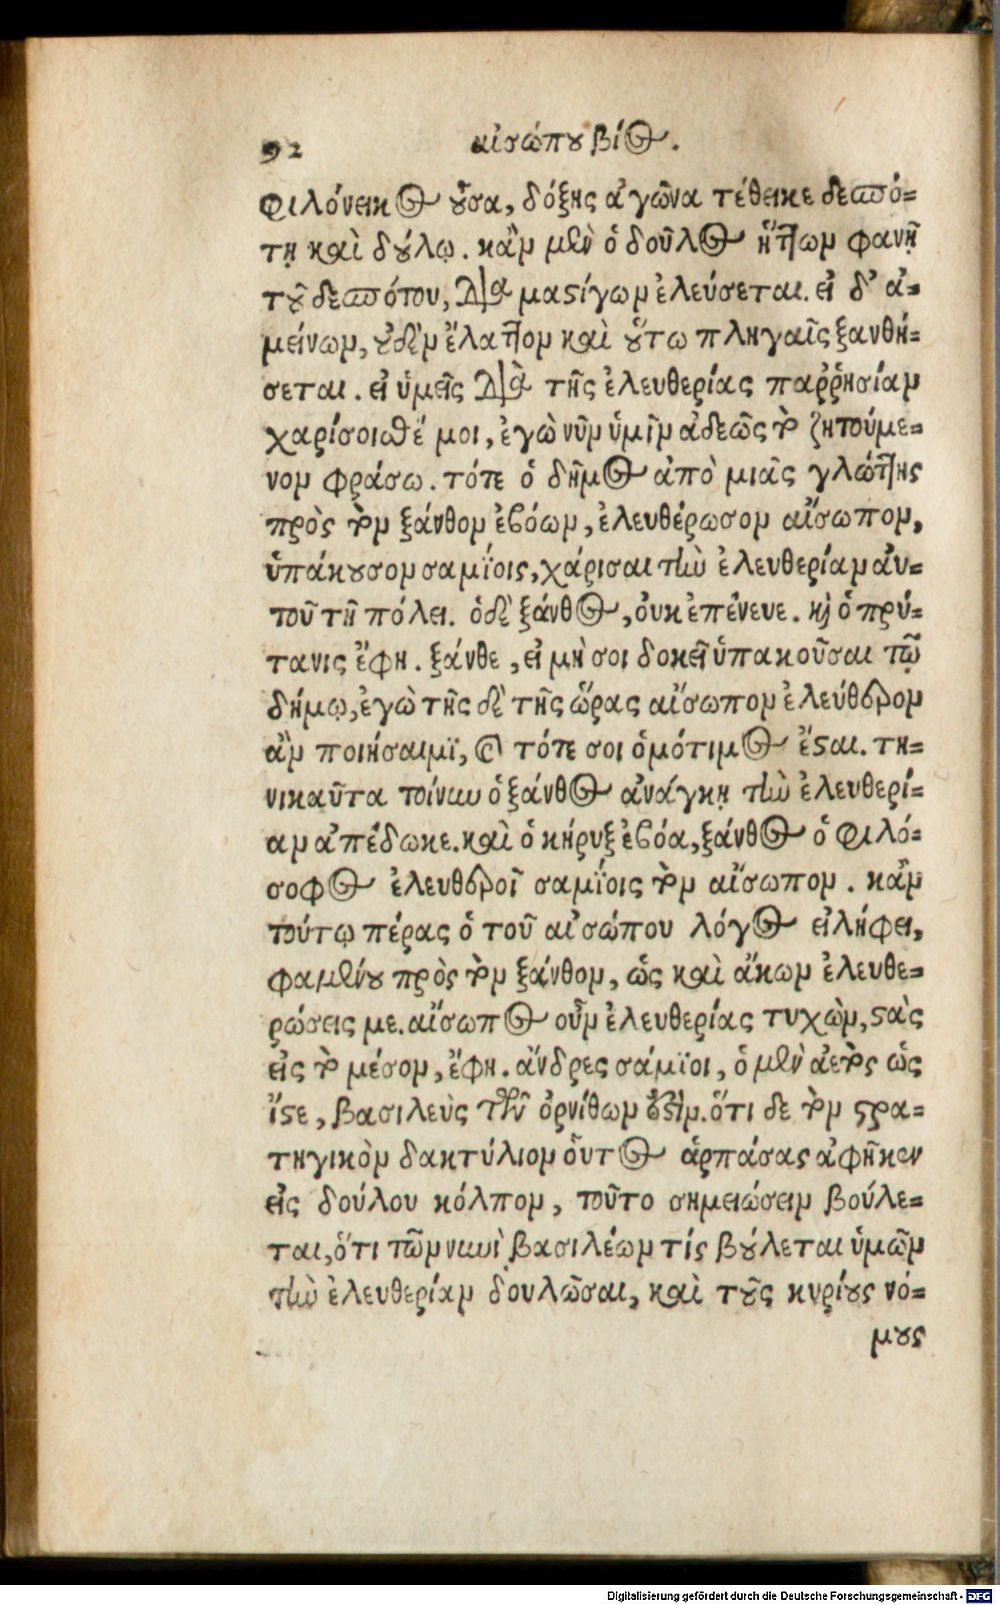 92 αἰσώπου βίος.
φιλόνεικος οὖσα, δόξης ἀγῶνα τέθεικε δεσπό-
τῃ καὶ δούλῳ. κἂν μὲν ὁ δοῦλος ἥττων φανῇ
τοῦ δεσπότου, διὰ μαστίγων ἐλεύσεται. εἰ δ' ἀ-
μείνων, οὐδὲν ἔλαττον καὶ οὕτω πληγαῖς ξανθή-
σεται. εἰ ὑμεῖς διὰ τῆς ἐλευθερίας παῤῥησίαν
χαρίσοισθέ μοι, ἐγὼ νῦν ὑμῖν ἀδεῶς τὸ ζητούμε-
νον φράσω. τότε ὁ δῆμος ἀπὸ μιᾶς γλώττης
πρὸς τὸν ξάνθον ἐβόων, ἐλευθέρωσον αἴσωπον,
ὑπάκουσον σαμίοις, χάρισαι τὴν ἐλευθερίαν αὐ-
τοῦ τῇ πόλει. ὁ δὲ ξάνθος, οὐκ ἐπένευε. καὶ ὁ πρύ-
τανις ἔφη. ξάνθε, εἰ μὴ σοι δοκεῖ ὑπακοῦσαι τῷ
δήμῳ, ἐγὼ τῆς δὲ τῆς ὥρας αἴσωπον ἐλεύθερον
ἂν ποιήσαιμϊ, καὶ τότε σοι ὁμότιμος ἔσται. τη-
νικαῦτα τοίνυν ὁ ξάνθος ἀνάγκῃ τὴν ἐλευθερί-
αν ἀπέδωκε. καὶ ὁ κήρυξ ἐβόα, ξάνθος ὁ φιλό-
σοφος ἐλευθεροῖ σαμίοις τὸν αἴσωπον. κἂν
τούτῳ πέρας ὁ τοῦ αἰσώπου λόγος εἰλήφει,
φαμένου πρὸς τὸν ξάνθον, ὡς καὶ ἄκων ἐλευθε-
ρώσεις με. αἴσωπος οὖν ἐλευθερίας τυχὼν, στὰς
εἰς τὸ μέσον, ἔφη. ἄνδρες σάμϊοι, ὁ μὲν ἀετὸς ὡς
ἴστε, βασιλεὺς τῶν ὀρνίθων ὅστιν. ὅτι δε τὸν στρα-
τηγικὸν δακτύλιον οὗτος ἁρπάσας ἀφῆκεν
εἰς δούλου κόλπον, τοῦτο σημειώσειν βούλε-
ται, ὅτι τῶν νυνὶ βασιλέων τίς βούλεται ὑμῶν
τὴν ἐλευθερίαν δουλῶσαι, καὶ τοῦς κυρίους νό-
μους
Digitalisierung gefördert durch die Deutsche Forschungsgemeinschaft - DFG